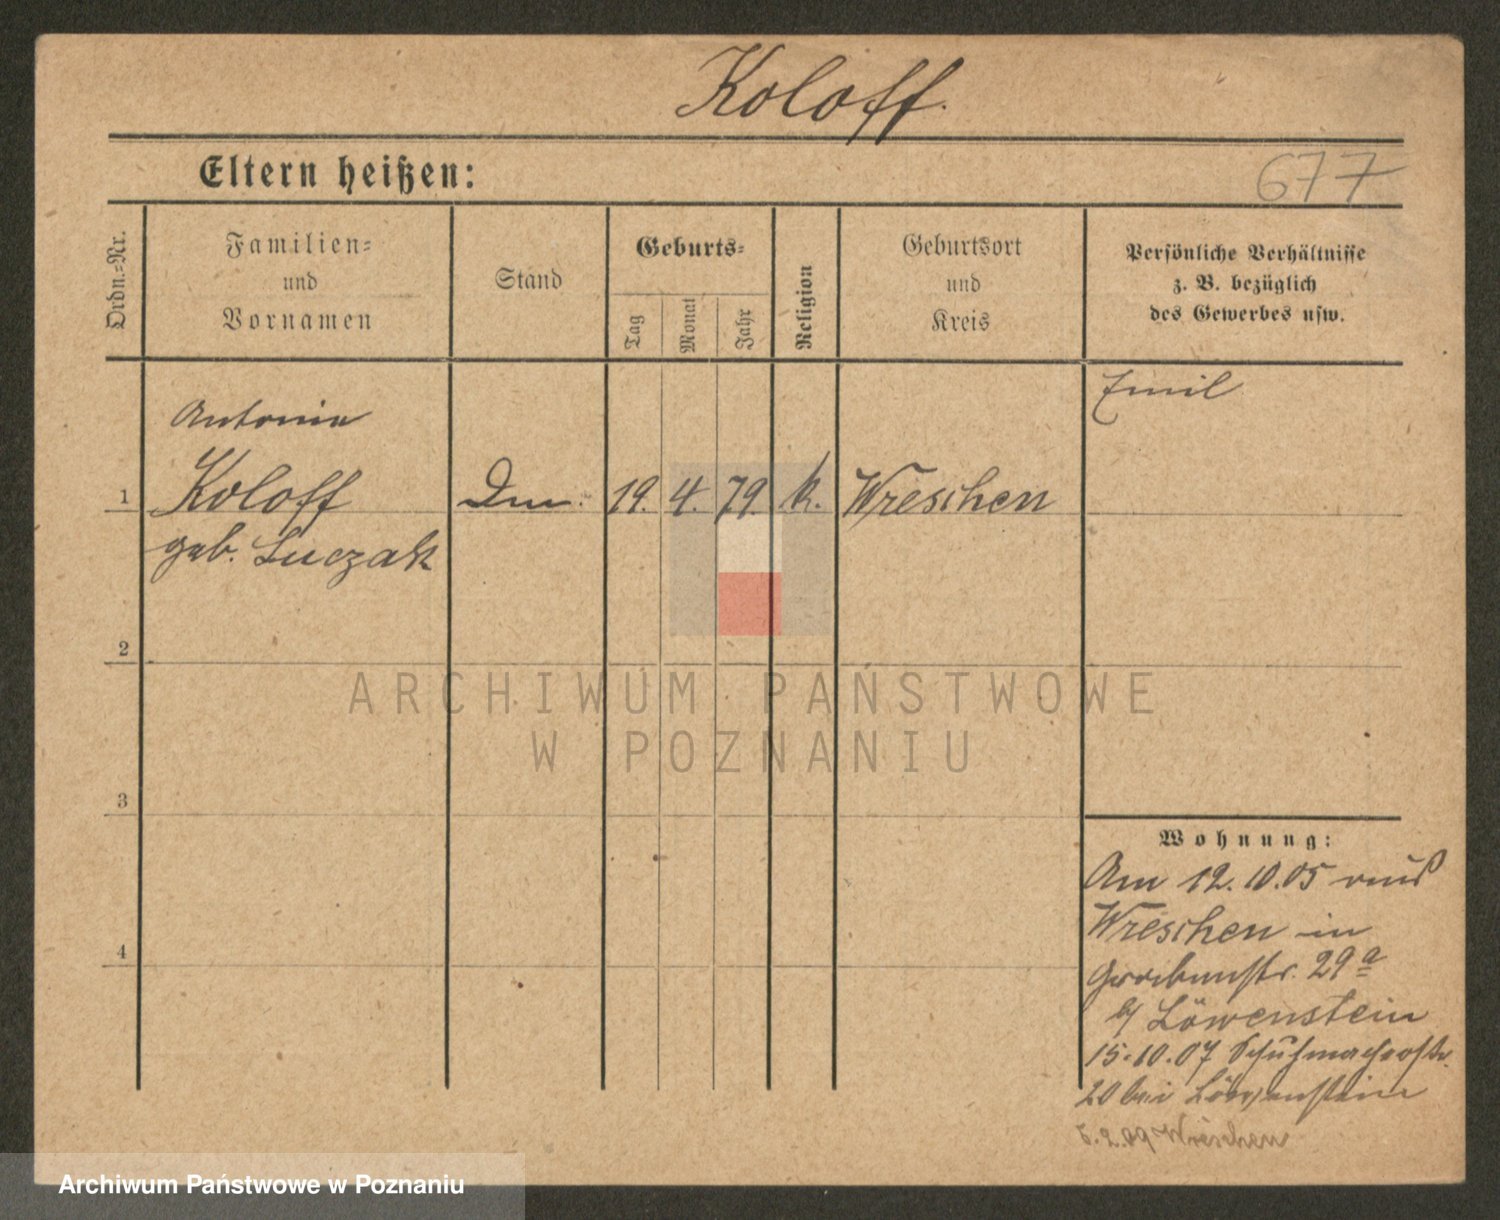 Koloff.
Eltern heißen:
677
Ordn.=Nr.
Familien=
und
Vornamen
Stand
Geburts=
Tag
Monat
Jahr
Religion
Geburtsort
und
Kreis
Persönliche Verhältnisse
z. B. bezüglich
des Gewerbes usw.
Emil
Antonie
1 Koloff 19. 4. 79. k. Wreschen
geb. Luczak
2
ARCHIWUM PAŃSTWOWE
W POZNANIU
3
Wohnung:
Am 12.10.05 aus
Wreschen in
4
Grabenstr. 29a
b/ Löwenstein
15.10.07 Schuhmacherstr.
20 bei Löwenstein
5.2.09 Wreschen
Archiwum Państwowe w Poznaniu